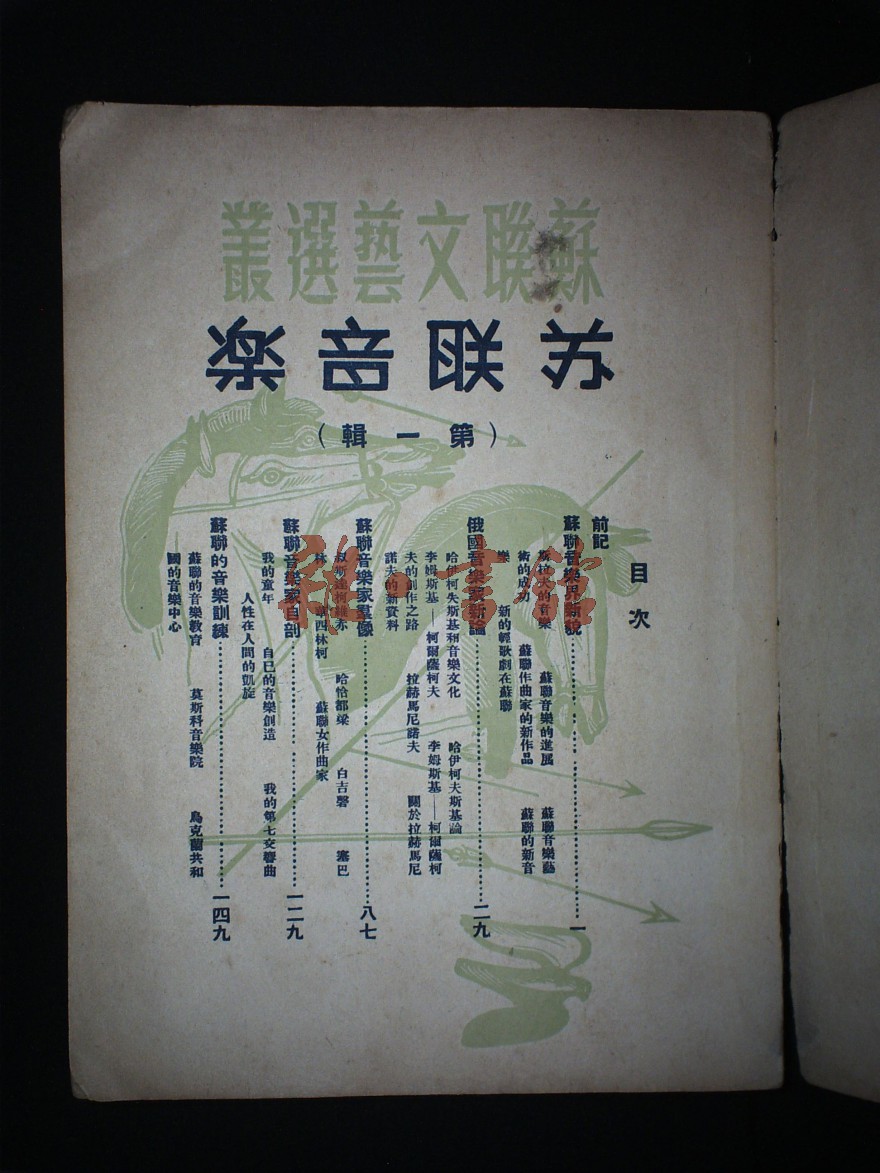 蘇聯文藝選叢
苏联音楽
（第一輯）
目次
前記
蘇聯音樂界新貌……………一
斯拉夫的音樂　蘇聯音樂的進展　蘇聯音樂藝
術的成功　蘇聯作曲家的新作品　蘇聯的新音
樂　新的輕歌劇在蘇聯
俄國音樂家新論……………二九
哈伊柯夫斯基和音樂文化　哈伊柯夫斯基論
李姆斯基——柯爾薩柯夫　李姆斯基——柯爾薩柯
夫的創作之路　拉赫馬尼諾夫　關於拉赫馬尼
諾夫的新資料
蘇聯音樂家羣像……………八七
叔斯達柯維赤　哈恰都梁　白吉磬　塞巴
林　華西林柯　蘇聯女作曲家
蘇聯音樂家自剖……………一二九
我的童年　自己的音樂創造　我的第七交響曲
人性在人間的凱旋
蘇聯的音樂訓練……………一四九
蘇聯的音樂教育　莫斯科音樂院　烏克蘭共和
國的音樂中心
雜·書館